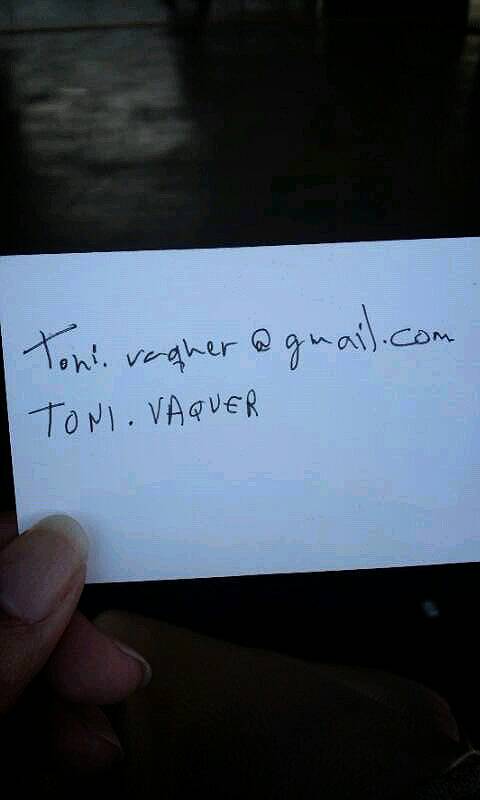 Toni.vaquer@gmail.com
TONI.VAQUER